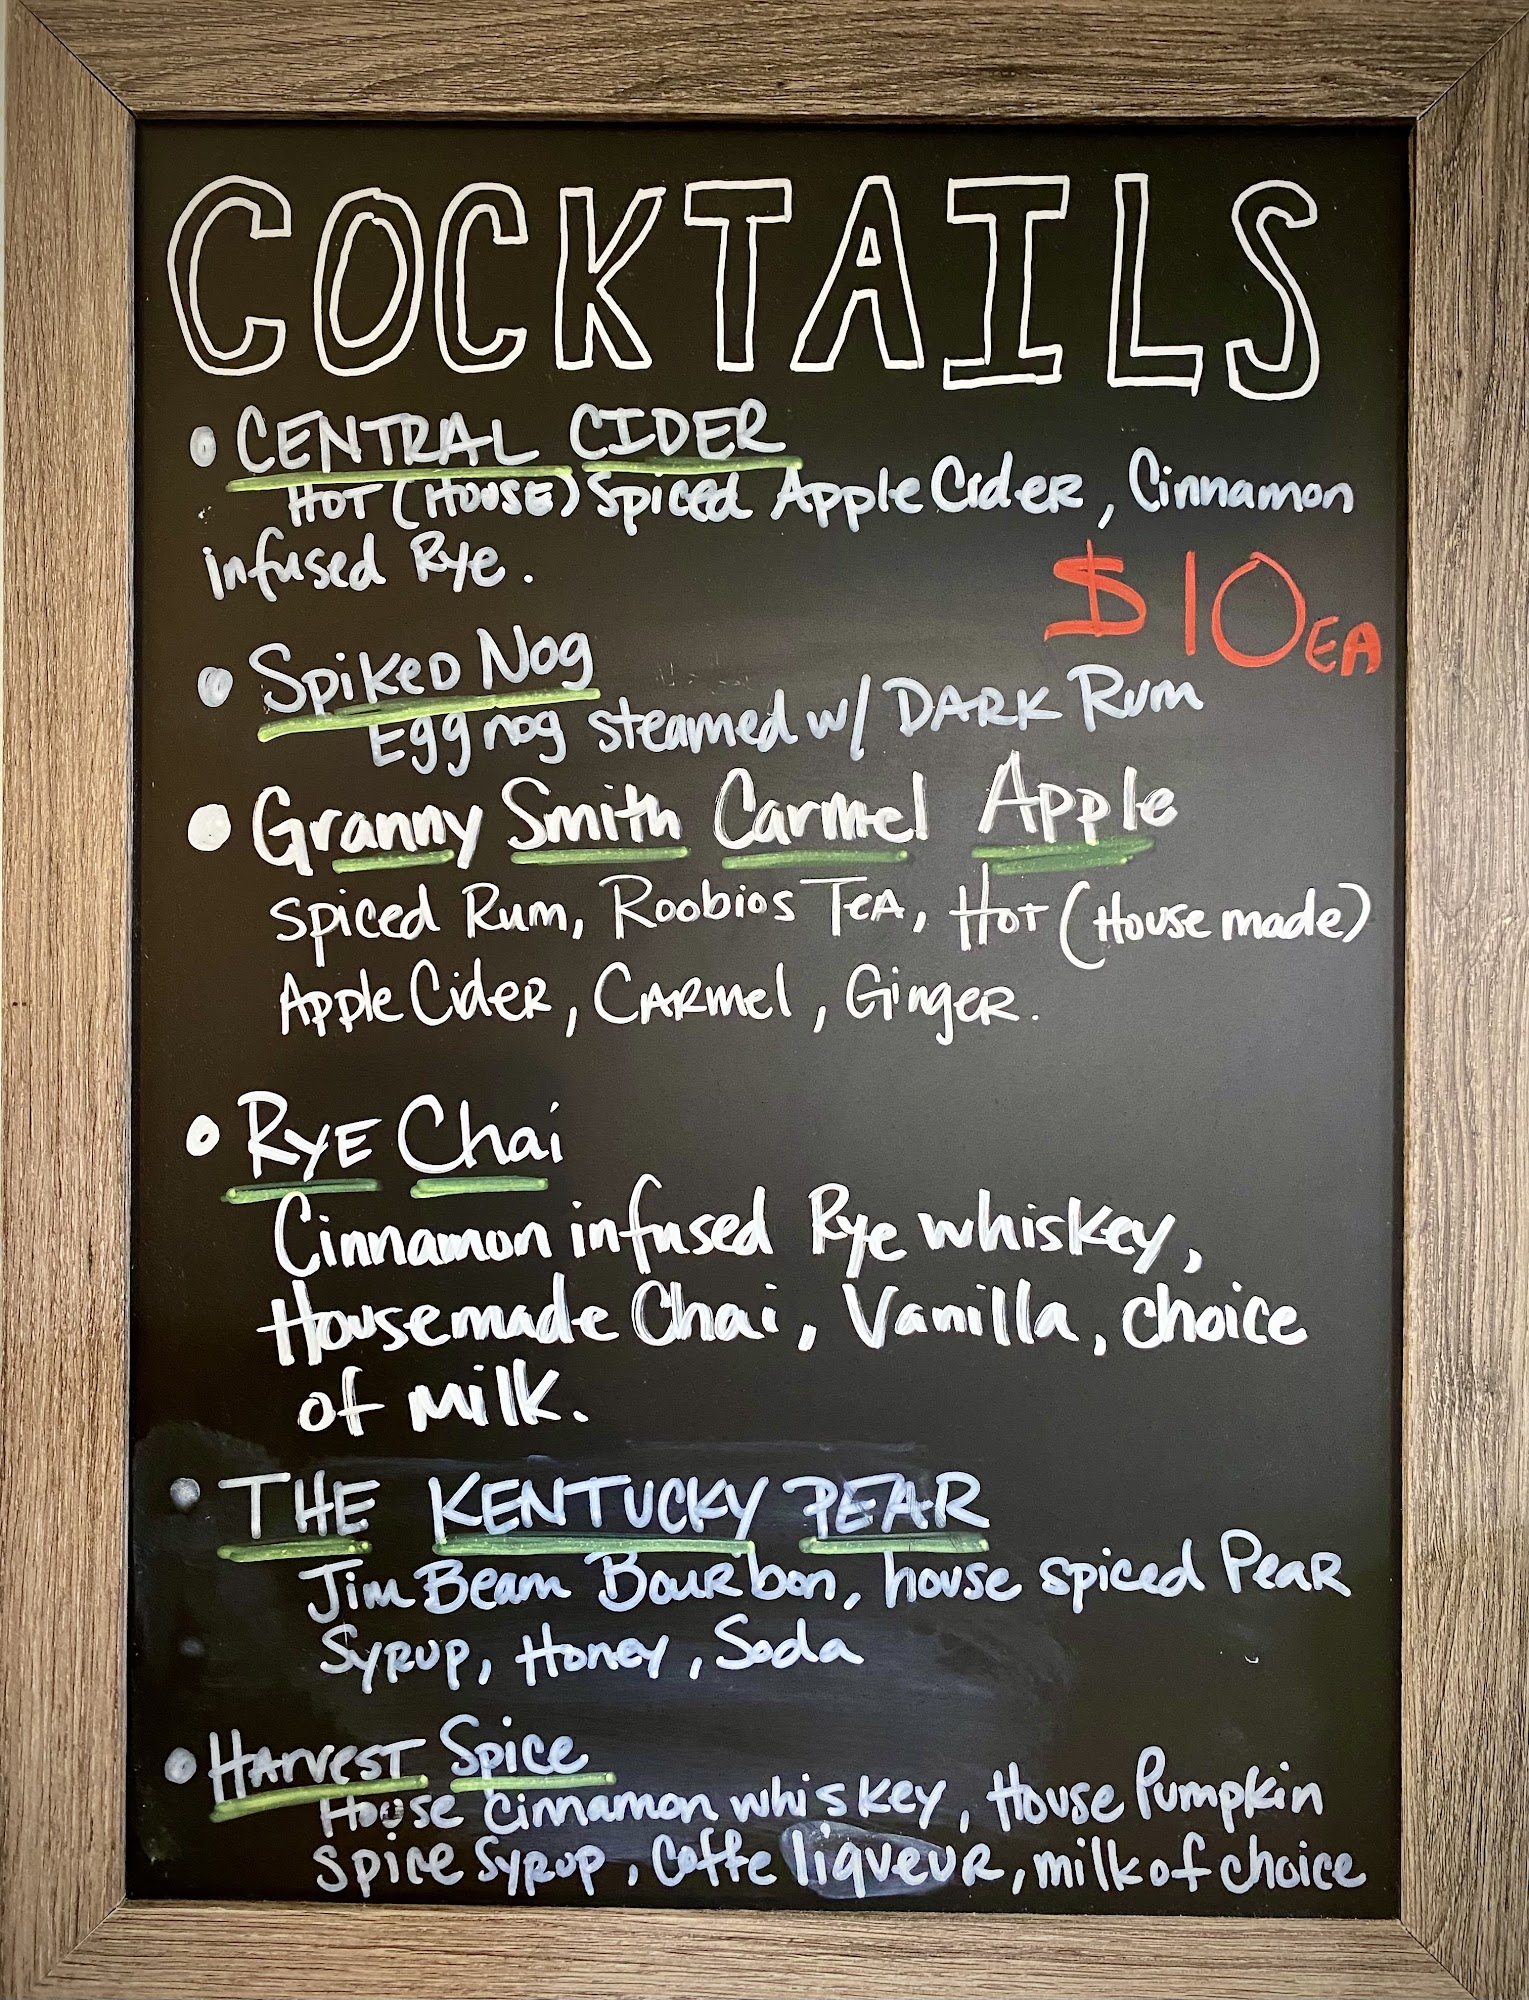 COCKTAILS
CENTRAL CIDER
HOT (HOUSE) Spiced Apple Cider, Cinnamon
infused Rye.
$10 EA
Spiked Nog
Egg nog steamed w/ DARK Rum
Granny Smith Carmel Apple
Spiced Rum, Roobios TeA, Hot (House made)
Apple Cider, CARmel, GingeR.
RyE Chai
Cinnamon infused Rye whiskey,
Housemade Chai, Vanilla, choice
of milk.
THE KENTUCKY PEAR
Jim Beam Bourbon, house spiced Pear
Syrup, Honey, Soda
Harvest Spice
House cinnamon whiskey, House Pumpkin
Spice Syrup, Coffe liqueur, milk of choice